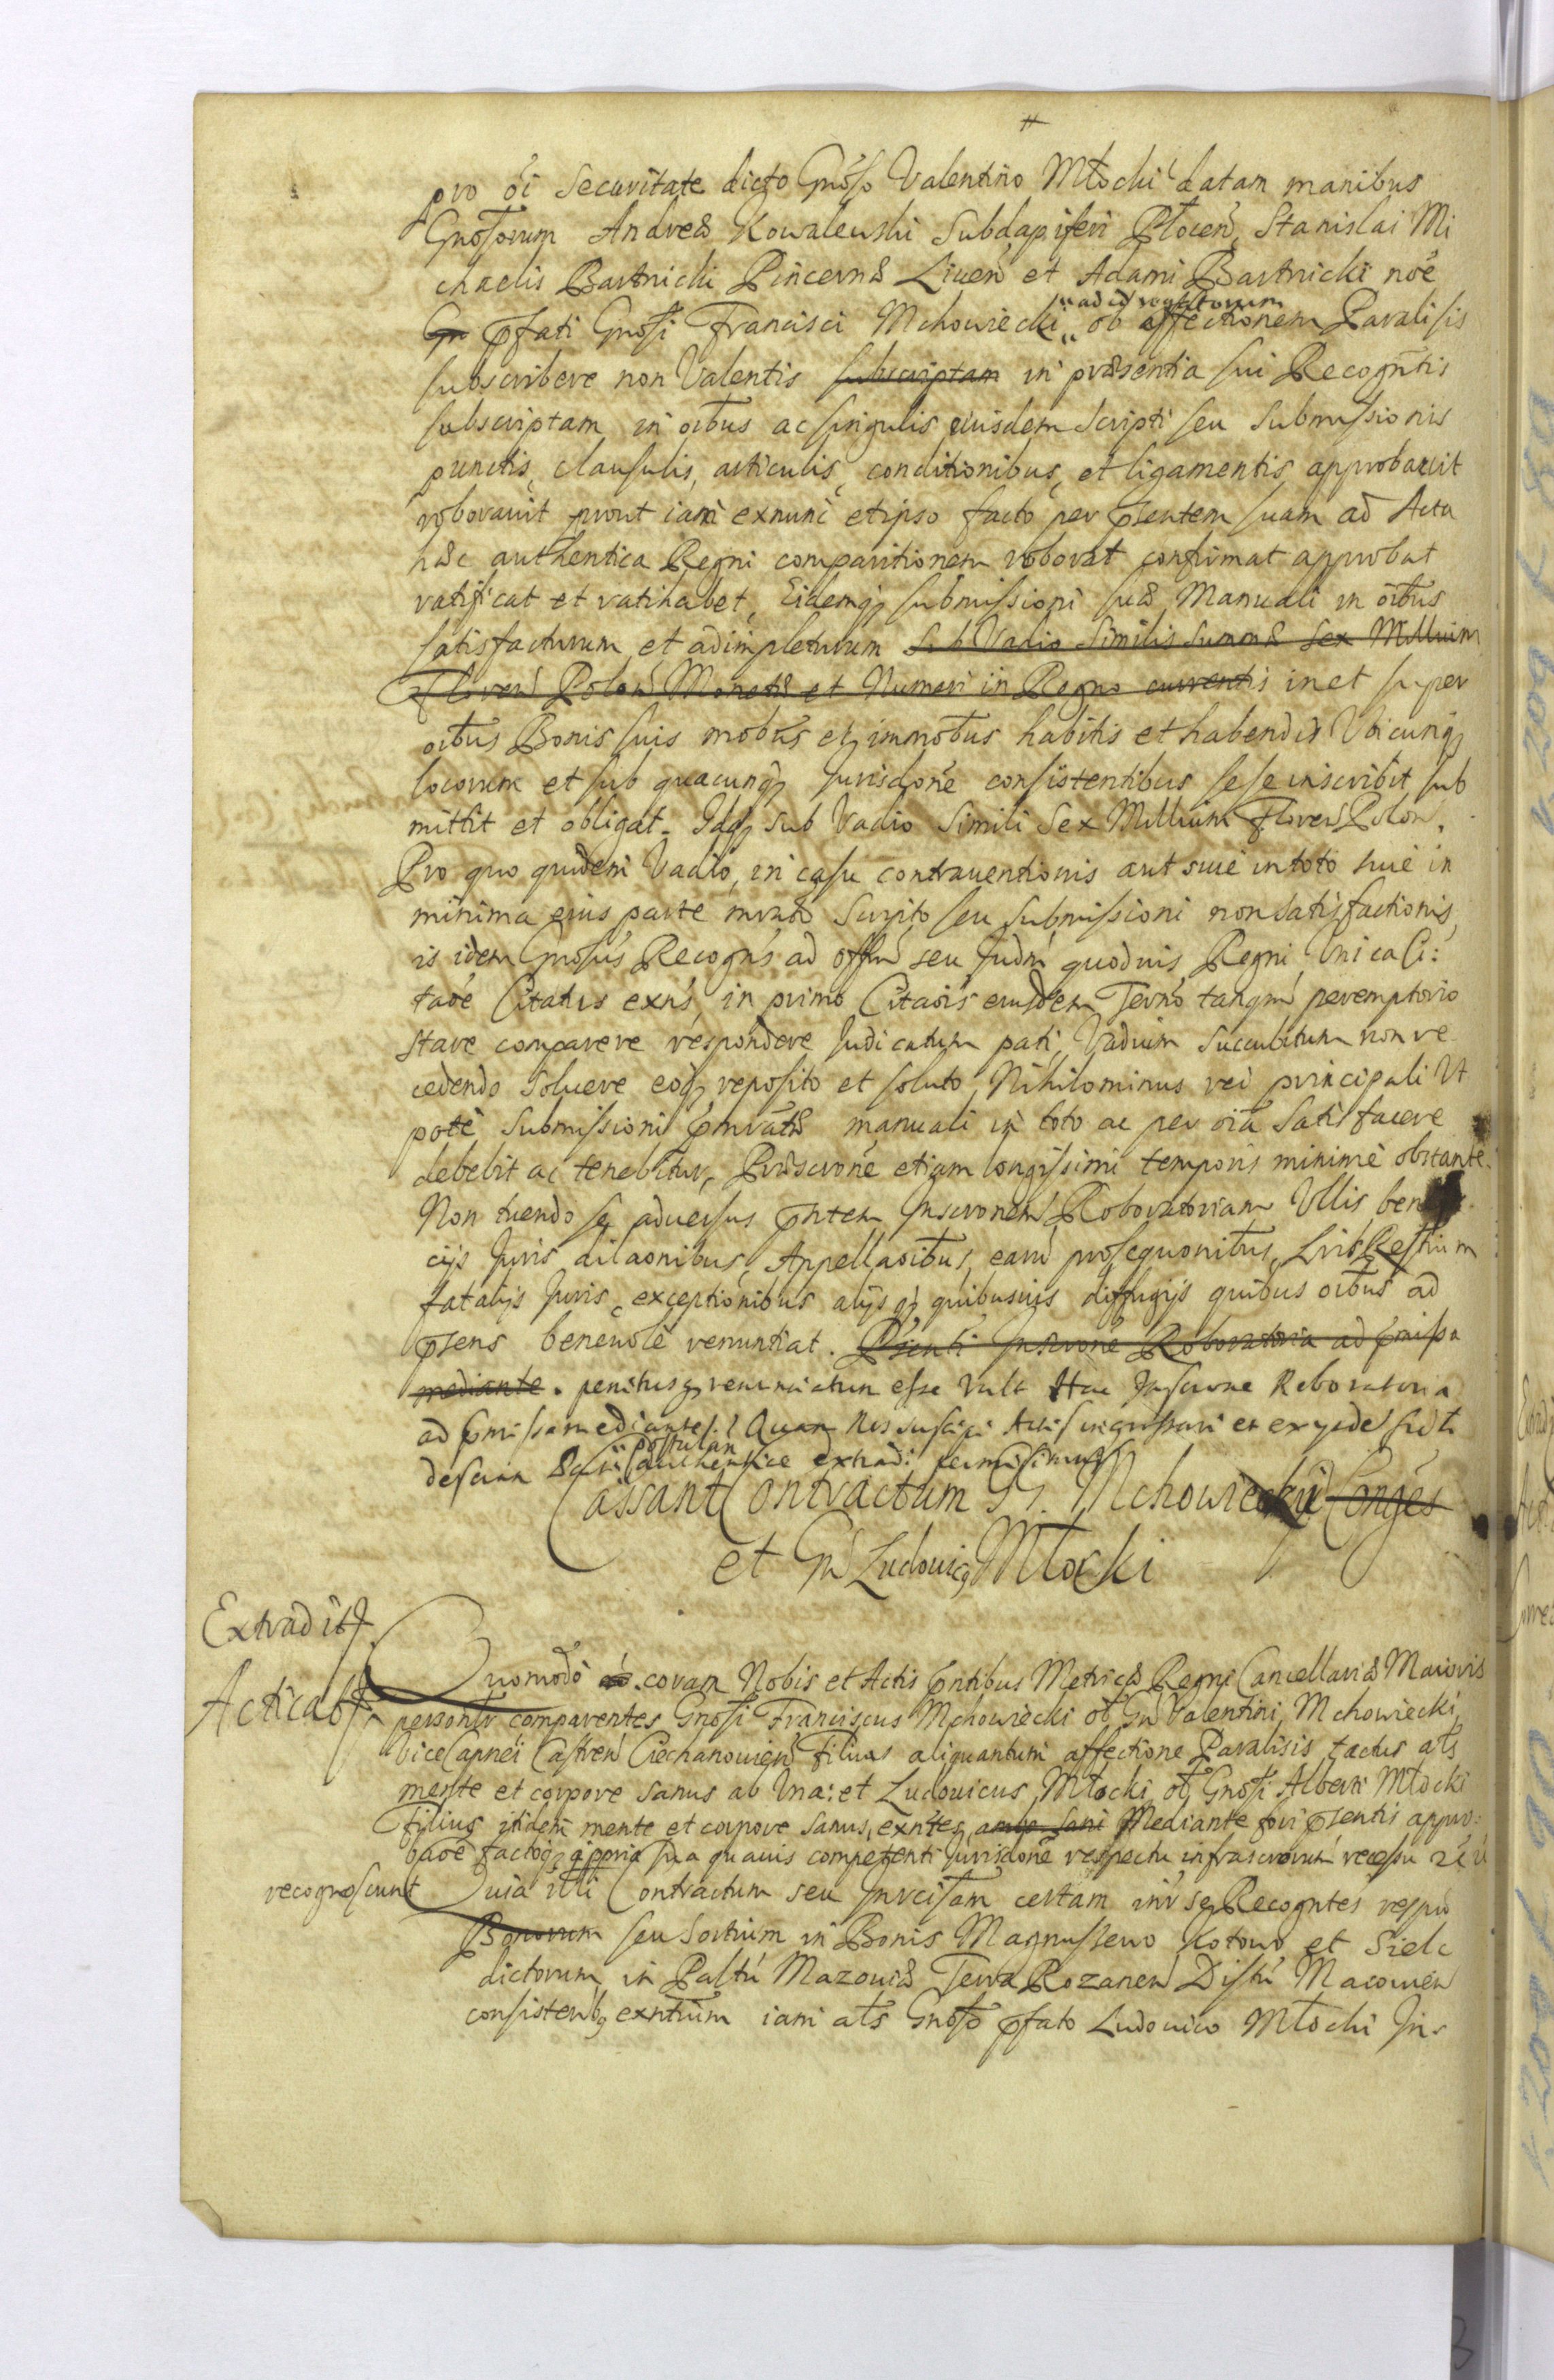 pro oi Securitate dicto Gnoso Valentino Młocki datam manibus
Gnosorum Andreæ Kowalewski Subdapiferi Płocen, Stanislai Mi
chaelis Bartnicki Pincernæ Liuen et Adami Bartnicki noe
Gn pfati Gnosi Francisci Mchowiecki ob affectionem Paralisis
ad id rogatorum
subscribere non Valentis subscriptam in præsentia sui Recogntis
subscriptam in oibus ac singulis eiusdem Scripti seu Submissionis
punctis, clausulis, articulis, conditionibus, et ligamentis approbauit
roborauit prout iam exnunc et ipso facto per psentem suam ad Acta
hæc authentica Regni comparitionem roborat confirmat approbat
ratificat et ratihabet, Eidemq submissioni suæ Manuali in oibus
satisfacturum et adimpleturum sub Vadio Similis Summæ Sex Millium
Floren Polon Monetæ et Numeri in Regno currentis in et super
oibus Bonis suis mobus et immobus habitis et habendis Vbicunq
locorum et sub quacunq Jurisdone consistentibus sese inscribit sub
mittit et obligat. Idq sub Vadio Simili Sex Millium Floren Polon.
Pro quo quidem Vadio, in casu contrauentionis aut siue in toto siue in
minima eius parte Scripto seu Submissioni non satisfactionis,
is idem Gnosus Recogns ad offm seu Judm quoduis Regni Vnica Ci:
taoe Citatus exns, in primo Citaois eiusdem Terno tanqm peremptorio
stare comparere respondere Judicatum pati, Vadium succubitum non re
cedendo soluere eoq reposito et soluto, Nihilominus rei principali Vt
pote Submissioni pmratæ manuali in toto ac per oia Satisfacere
debebit ac tenebitur, Præscrone etiam longissimi temporis minime obstante.
Non tuendo se aduersus pntem Inscronem Roboratoriam Vllis benefi
cijs Juris dilaonibus, Appellaoibus, earu prosequonibus,
fatalijs Juris, exceptionibus alijsq quibusuis diffugijs quibus oibus ad
psens beneuole renuntiat. Psenti Inscrone Roboratoria ad pmissa
mediante. penitusq renunciatum esse vult Hac Inscrone Roboratoria
ad pmissa mediante Quam Nos suscipi Actis ingrossari et
postulan
authentice extradi permisimus
Cassant Contractum GG. Mchowiecki Conges
et Gn Ludouicq Młocki
Extradit
Acticat
Quomodo coram Nobis et Actis pntibus Metricæ Regni Cancellariæ Maioris
personlr comparentes Gnosi Franciscus Mchowiecki ol Gn Valentini Mchowiecki
ViceCapnei Castren Ciechanouien Filius aliquantum affectione Paralisis tactus als
mente et corpore sanus ab Vna: et Ludouicus Młocki ol Gnosi Alberti Młocki
Filius itidem mente et corpore sanus, exntes, ambo sani Mediante fori psentis appro:
baoe factoq a ppria sua quauis competenti Jurisdone respectu infrascrorum recessu
recognoscunt
Quia illi Contractum seu certam intr se Recogntes respu
Bonorum seu Sortium in Bonis Magnuszewo Kotowo et Siele
dictorum, in Paltu Mazouiæ Terra Rozanen Distu Macouien
consistenbq exntium iam als Gnoso pfato Ludouico Młocki Jn